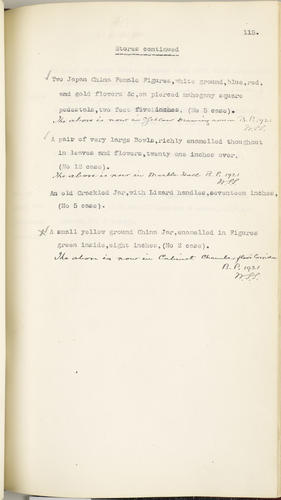 115.
Stores continued
Two Japan China Female Figures,white ground,blue,red,
and gold flowers &c,on pierced mahogany square
pedestals,two feet five inches. (No 5 case).
The above is now in Yellow Drawing room B.P. 1921
W.S.S.
A pair of very large Bowls,richly enamelled thoughout
in leaves and flowers,twenty one inches over.
(No 12 case).
The above is now in Marble Hall B.P. 1921
An old Crackled Jar,with Lizard handles,seventeen inches,
(No 5 case).
A small yellow ground China Jar,enamelled in Figures
green inside,eight inches,(No 2 case).
The above is now in Cabinet Chamber floor Corridor
B.P. 1921